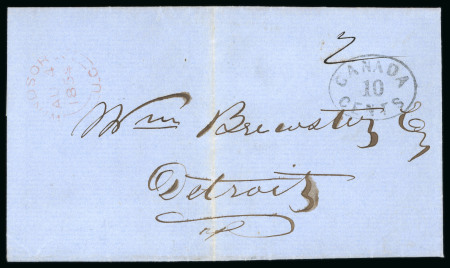 CANADA
10
CENTS
Wm Brewster Esq
Detroit